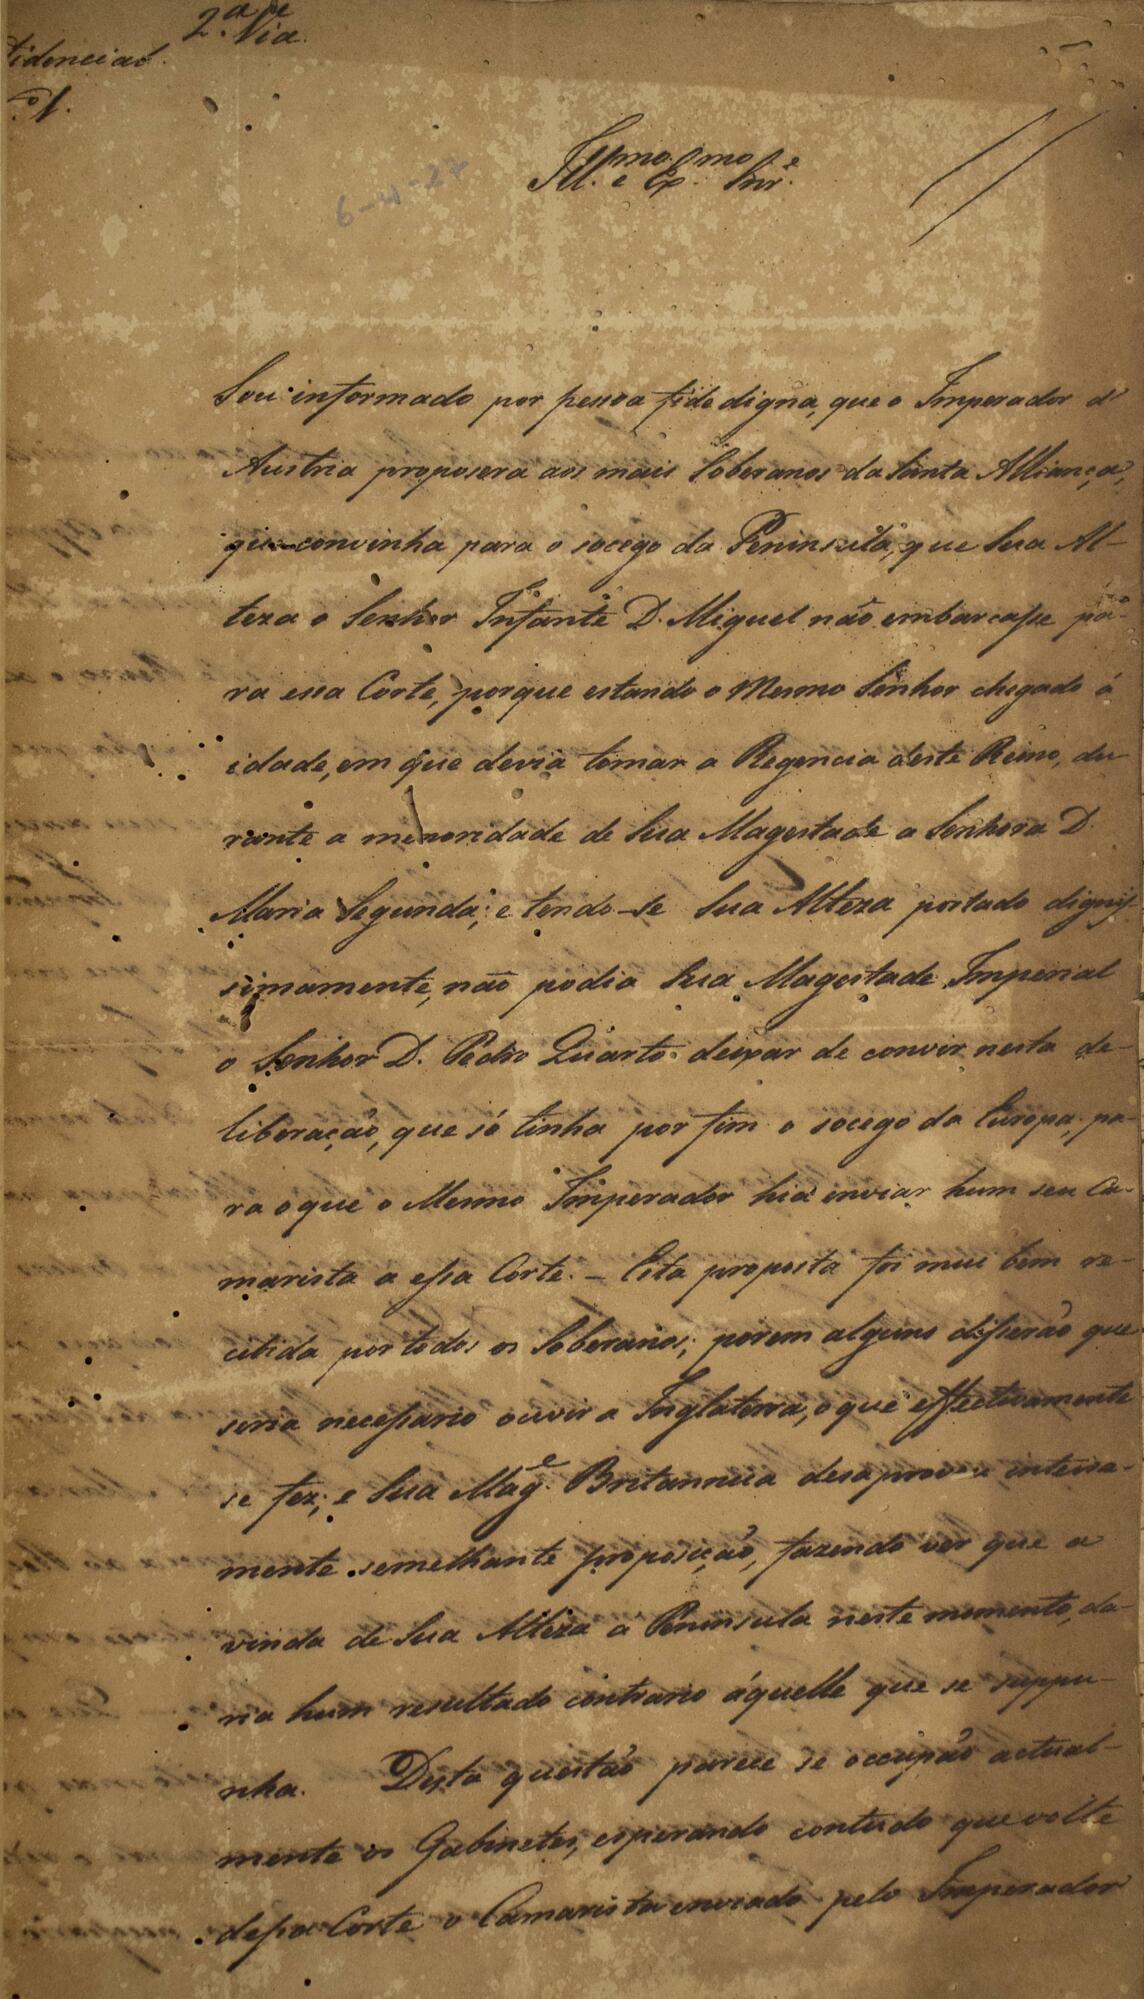 2.ª Via
fidencial.
N.º 1.
6-4-27
Ill.mo e Ex.mo Snr.e
Sou informado por pessoa fidedigna, que o Imperador d'
Austria proposera aos mais Soberanos da Santa Alliança,
que convinha para o socego da Peninsula, que Sua Al-
teza o Senhor Infante D. Miguel não embarcasse pa-
ra essa Corte, porque estando o Mesmo Senhor chegado á
idade, em que devia tomar a Regencia deste Reino, du
rante a menoridade de Sua Magestade a Senhora D.
Maria Segunda; e tendo-se Sua Alteza portado dignis-
simamente, não podia Sua Magestade Imperial
o Senhor D. Pedro Quarto deixar de convir nesta de-
liberação, que só tinha por fim o socego da Europa, pa-
ra o que o Mesmo Imperador hia enviar hum seu Ca-
marista a essa Corte. - Esta proposta foi mui bem re-
cibida por todos os Soberanos; porem alguns disserão que
seria necessario ouvir a Inglaterra, o que effectivamente
se fez; e Sua Mag.e Britannica desaprovou inteira-
mente semelhante proposição, fazendo ver que a
vinda de Sua Alteza á Peninsula neste momento, da-
ria hum resultado contrario áquelle que se suppu-
nha. Desta questão parece se occupão actual-
mente os Gabinetes, esperando contudo que volte
dessa Corte o Camarista enviado pelo Imperador